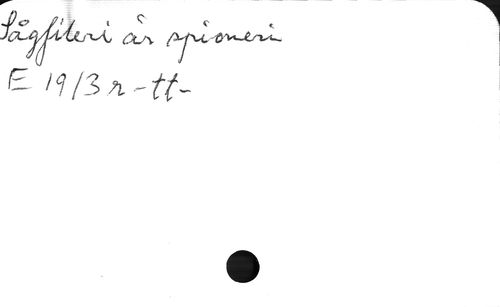 Sågfileri är spioneri
E 19/3 r -tt-